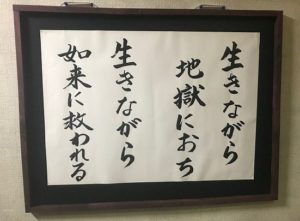 生きながら
地獄におち
生きながら
如来に救われる